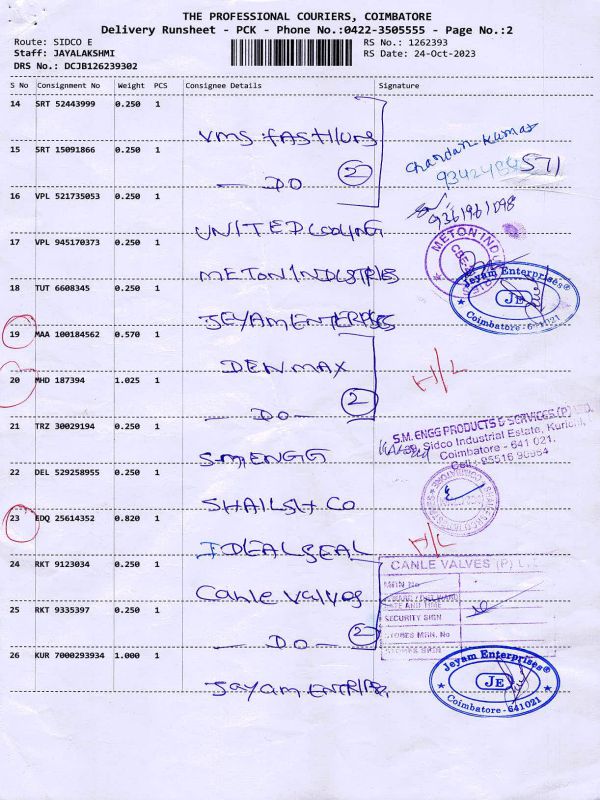 THE PROFESSIONAL COURIERS, COIMBATORE
Delivery Runsheet - PCK - Phone No.:0422-3505555 - Page No.:2
Route: SIDCO E
RS No.: 1262393
Staff: JAYALAKSHMI
RS Date: 24-Oct-2023
DRS No.: DCJB126239302
S No Consignment No Weight PCS Consignee Details Signature
14 SRT 52443999 0.250 1
VMS
15 SRT 15091866 0.250 1
Chandan Kumar
DO 2
16 VPL 521735053 0.250 1
9361961098
UNITED COOLING
17 VPL 945170373 0.250 1
METON INDUSTRIES
METON INDU
CBE
18 TUT 6608345 0.250 1
Jeyam Enterprises®
JE
Coimbatore - 641021
JEYAM ENTERPRISES
19 MAA 100184562 0.570 1
DENMAX
H/L
20 MHD 187394 1.025 1
DO 2
21 TRZ 30029194 0.250 1
S.M. ENGG PRODUCTS & SERVICES (P) LTD.
Sidco Industrial Estate, Kurichi,
Coimbatore - 641 021.
S.M. ENGG
22 DEL 529258955 0.250 1
SHAILSH CO
23 EDQ 25614352 0.820 1
H/L
IDEAL SEAL
24 RKT 9123034 0.250 1
CANLE VALVES (P) L
MRN No
DATE AND TIME
SECURITY SIGN
STORES MRN. No
STORES SIGN
Canle Valves
25 RKT 9335397 0.250 1
DO 2
26 KUR 7000293934 1.000 1
Jeyam Enterprises®
JE
Coimbatore - 641021